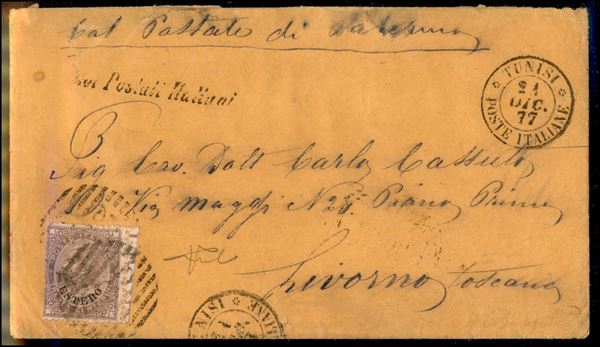 Col Postale di Palermo
Postali Italiani
TUNISI
21
DIC.
77
POSTE ITALIANE
Sig Cav. Dott Carlo Cassuto
Via Maggi N 25 Piano Primo
Livorno Toscana
ESTERO
TUNISI